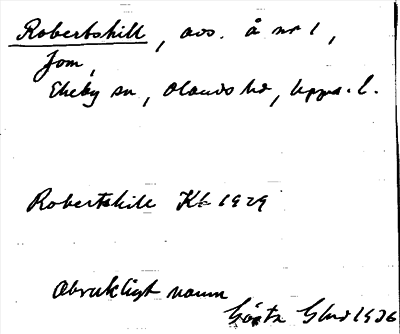 Robertskill, avs. å nr 1,
Jom,
Ekeby sn, Olands hd, Upps. l.
Robertskill Kb 1929
Obrukligt namn
Gösta 1936